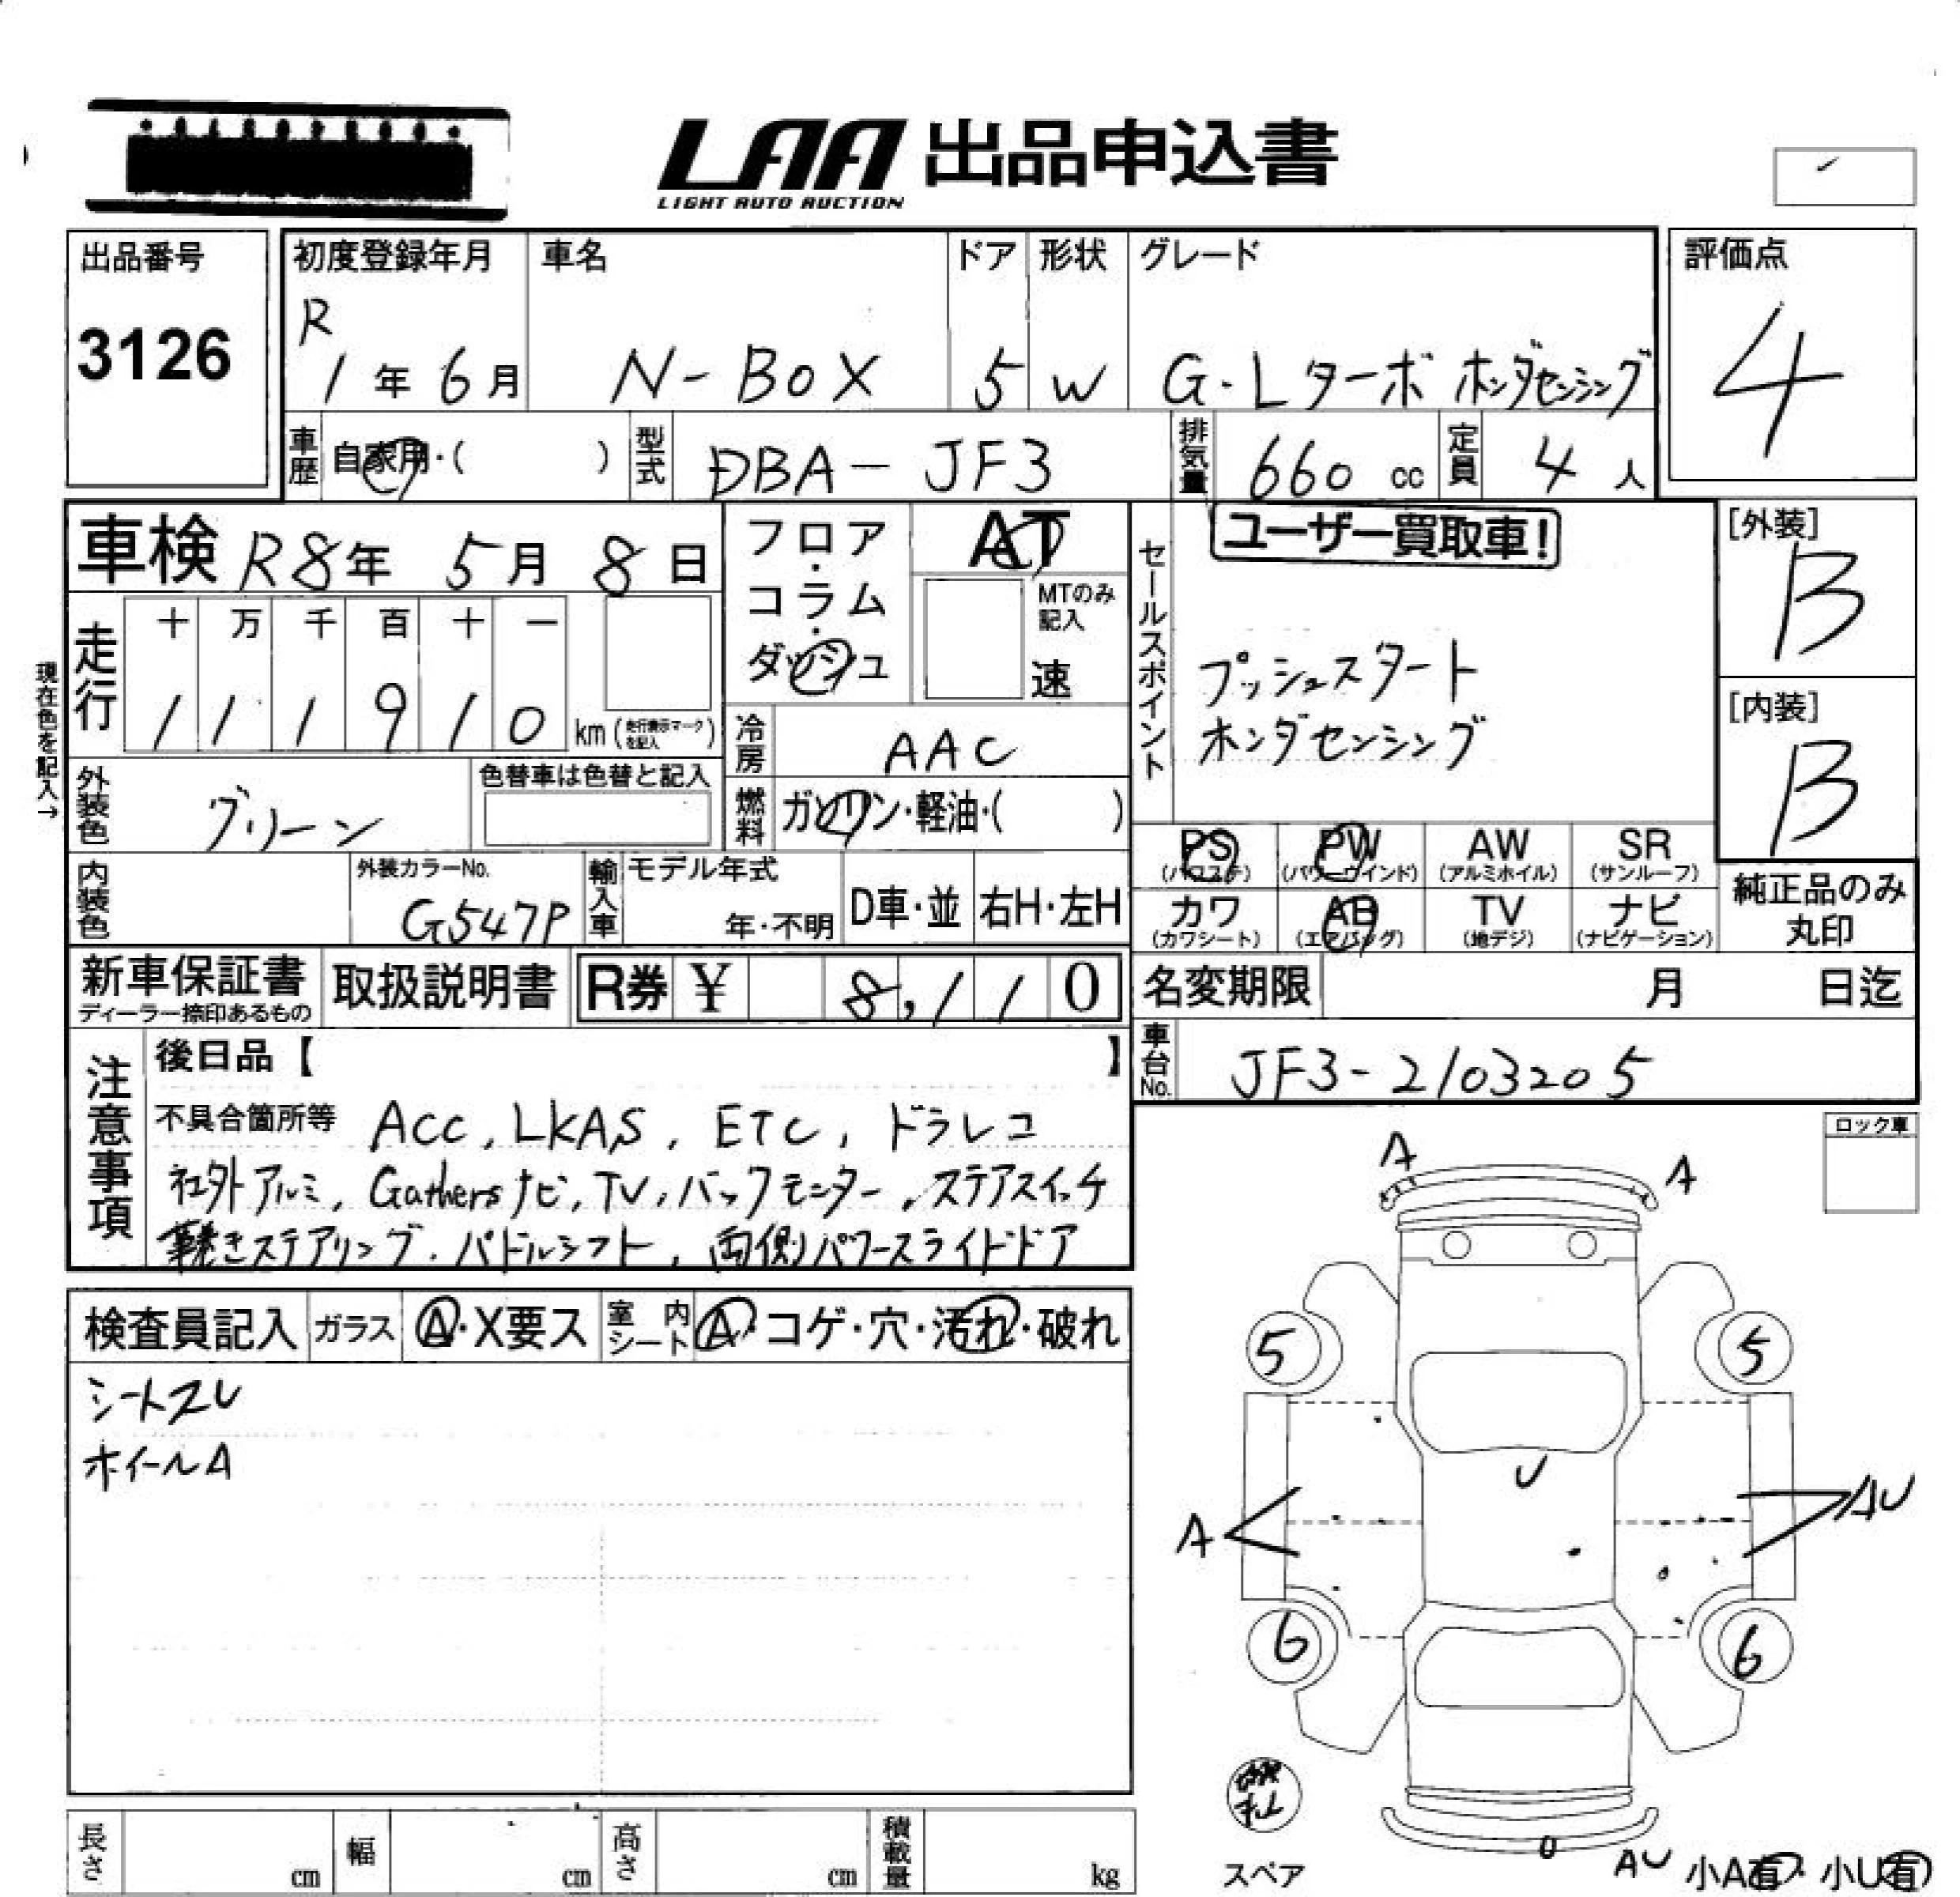 LAA 出品申込書
LIGHT AUTO AUCTION
出品番号
3126
初度登録年月
R
1年6月
車名
N-BOX
ドア
5
形状
W
グレード
G・Lターボ ホンダセンシング
評価点
4
車歴 自家用・( )
型式 DBA-JF3
排気量 660 cc
定員 4人
車検 R8年 5月 8日
現在色を記入→
走行
十 万 千 百 十 一
1 1 1 9 1 0 km (走行表示マークを記入)
フロア・コラム・ダッシュ
AT
MTのみ記入
速
冷房 AAC
燃料 ガソリン・軽油・( )
セールスポイント
ユーザー買取車!
プッシュスタート
ホンダセンシング
[外装]
B
[内装]
B
外装色 グリーン
色替車は色替と記入
内装色
外装カラーNo.
G547P
輸入車
モデル年式
年・不明
D車・並
右H・左H
PS (パワステ)
PW (パワーウインド)
AW (アルミホイル)
SR (サンルーフ)
カワ (カワシート)
AB (エアバッグ)
TV (地デジ)
ナビ (ナビゲーション)
純正品のみ
丸印
新車保証書
ディーラー捺印あるもの
取扱説明書
R券 ¥ 8,110
名変期限 月 日迄
車台No. JF3-2103205
注意事項
後日品【 】
不具合箇所等 ACC, LKAS, ETC, ドラレコ
社外アルミ, Gathersナビ, TV, バックモニター, ステアスイッチ
革巻きステアリング, パドルシフト, 両側パワースライドドア
ロック車
検査員記入
ガラス A・X要ス
室内シート A・コゲ・穴・汚れ・破れ
シートスレ
ホイールA
A
A
5
5
U
A
AU
6
6
スペア
U
AU
小A有・小U有
長さ cm
幅 cm
高さ cm
積載量 kg